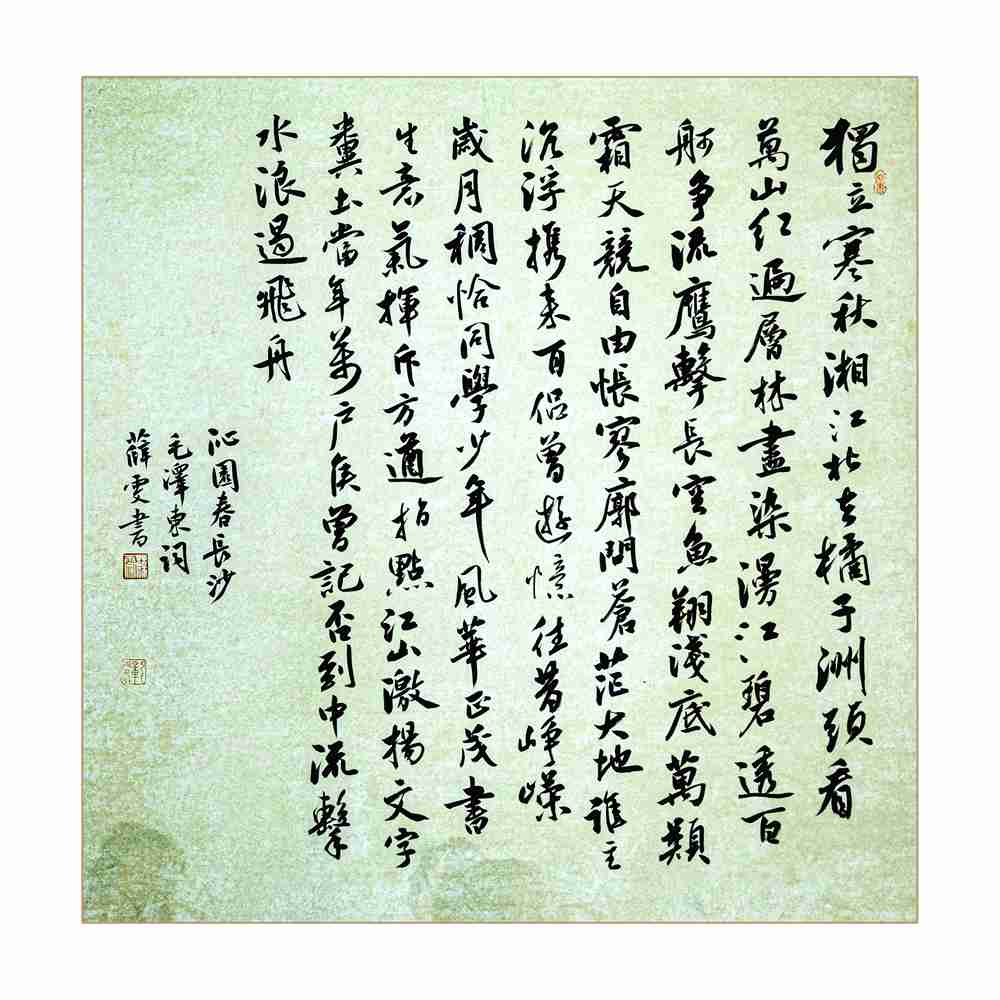 獨立寒秋湘江北去橘子洲頭看
萬山红遍層林盡染漫江碧透百
舸争流鷹擊長空魚翔淺底萬類
霜天競自由悵寥廓問蒼茫大地誰主
沉浮携来百侣曾遊憶往昔崢嶸
歲月稠恰同學少年風華正茂書
生意氣揮斥方遒指點江山激揚文字
糞土當年萬户侯曾記否到中流擊
水浪遏飛舟
沁園春長沙
毛澤東詞
薛雯書